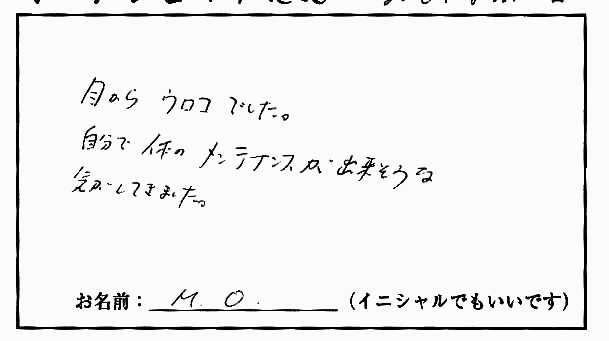 目から ウロコ でした。
自分で 体の メンテナンスが 出来そうな
気がしてきました。
お名前： M. O. （イニシャルでもいいです）